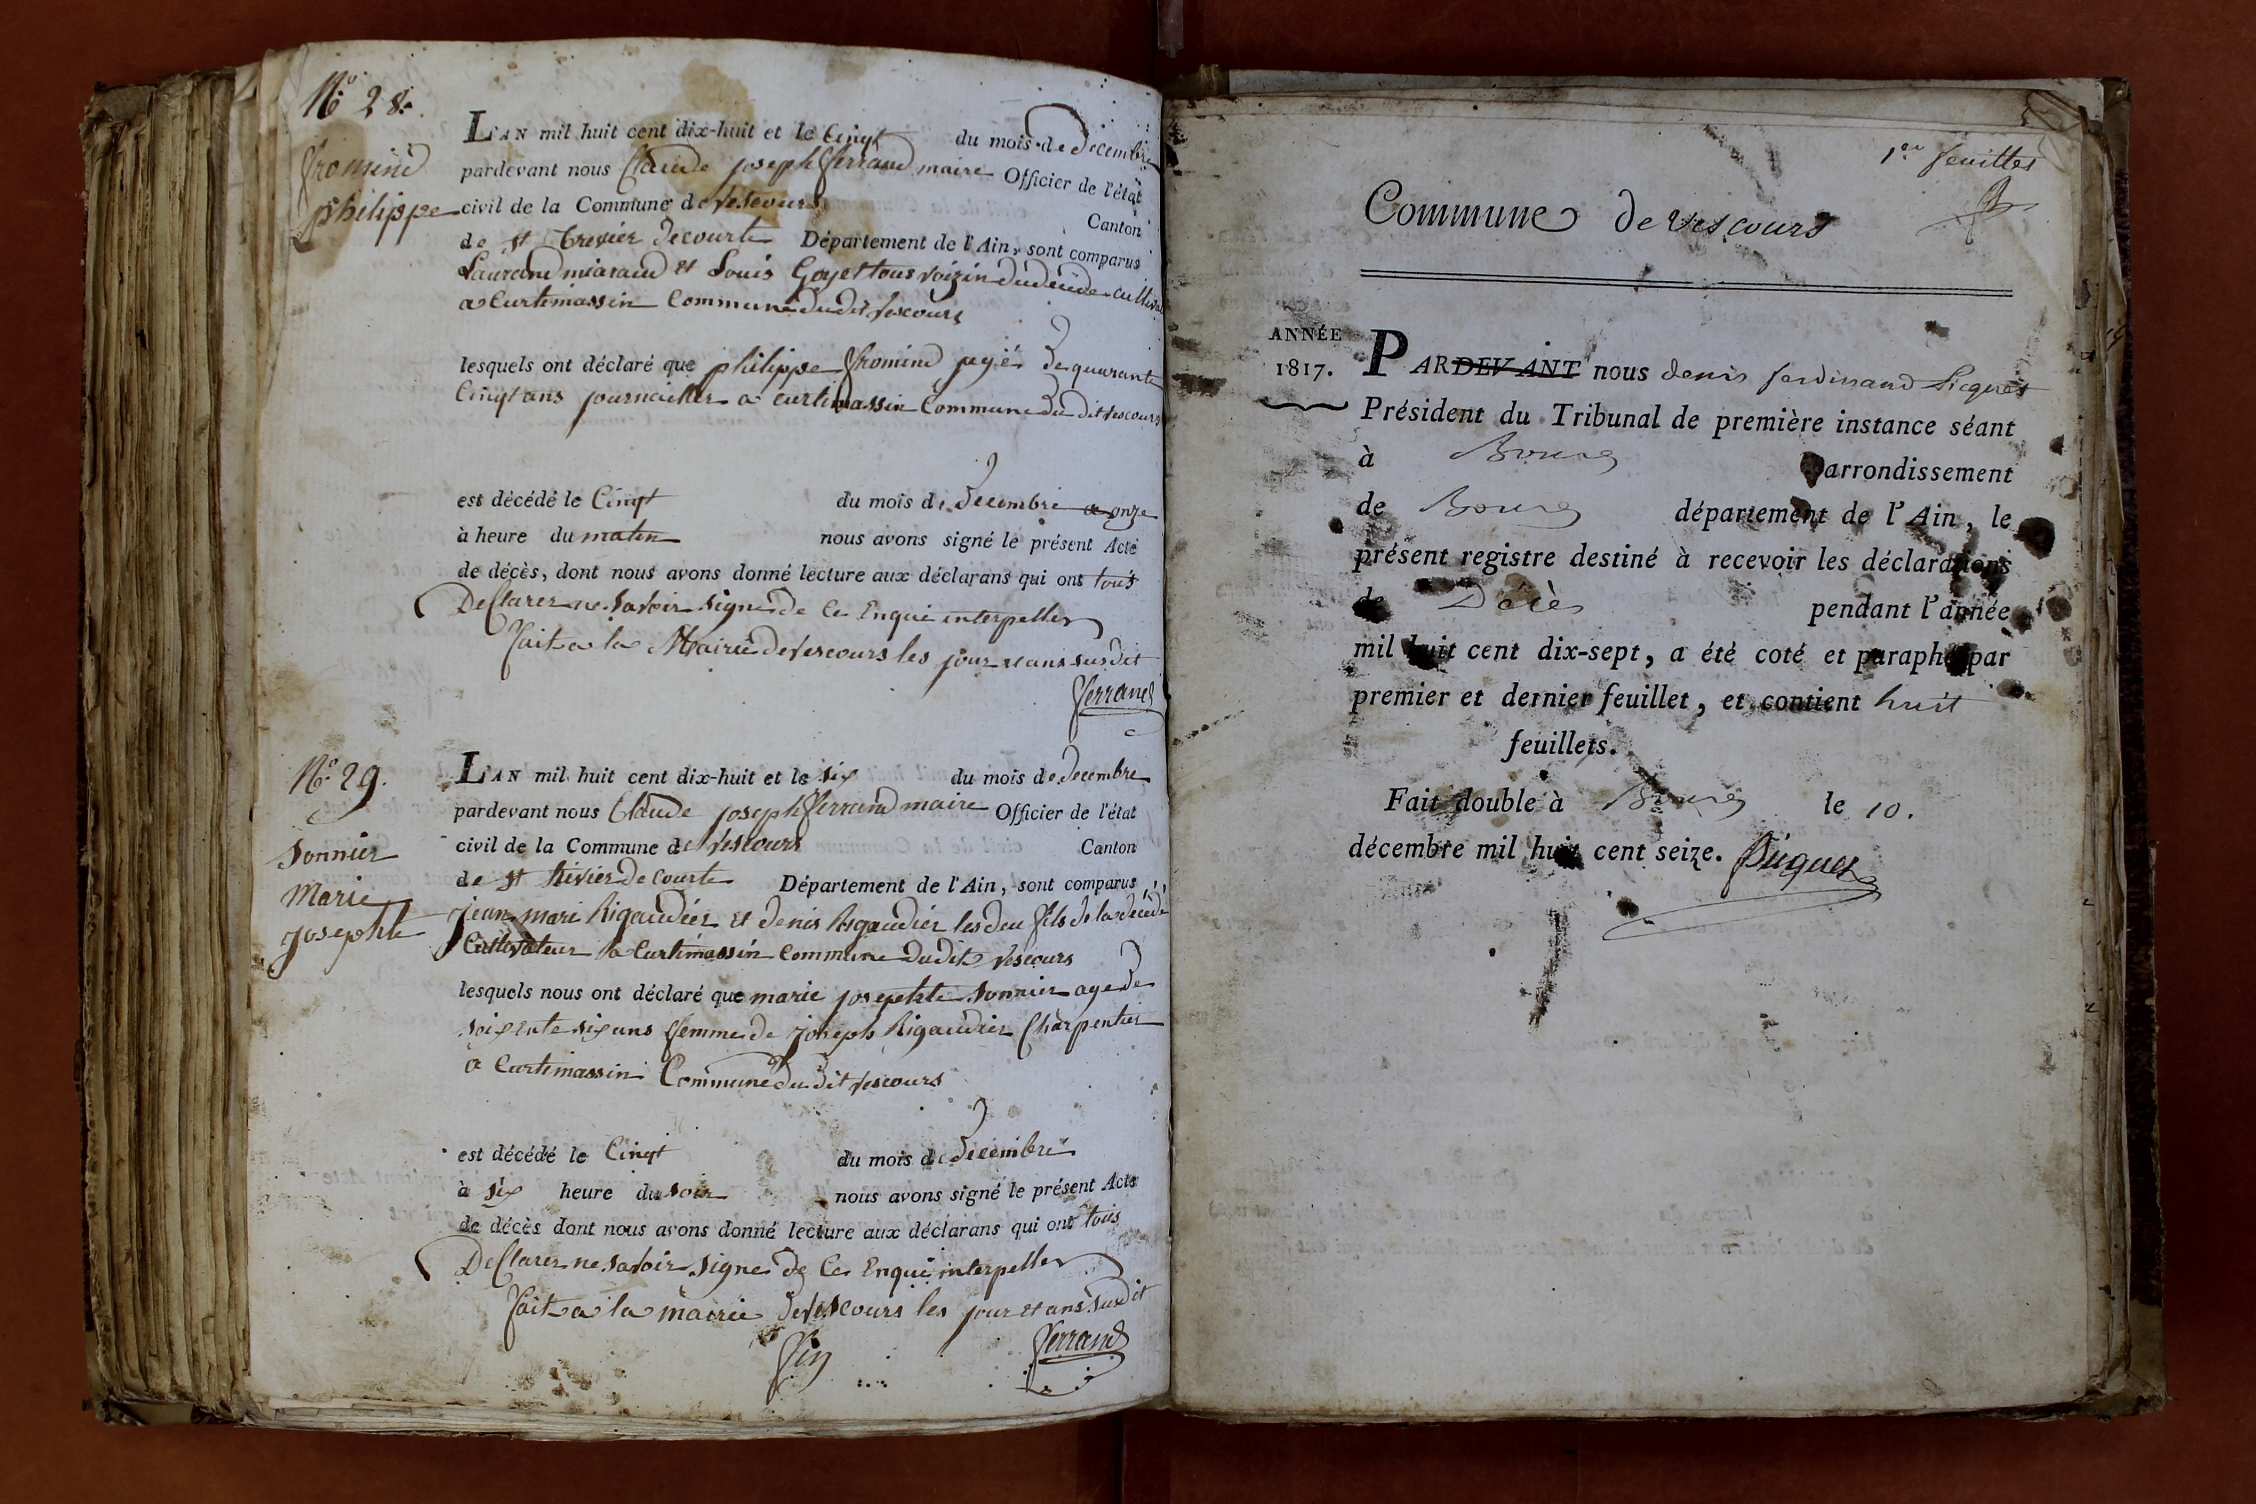 N.º 28.
Fromine
philippe
L'AN mil huit cent dix-huit et le Cinqt du mois de decembre
pardevant nous Claude joseph fferrand maire Officier de l'état
civil de la Commune de vescours Canton
de st trevier decourte Département de l'Ain, sont comparus
Laurand miaraud et Louis Goyet tous voizin du
a Curtimassin Commune du dit vescours
lesquels ont déclaré que philippe ffromine agé de quarante
Cinqt ans journailler a curtimassin Commune du dit vescours
est décédé le Cinqt du mois de decembre a onze
à heure du matin nous avons signé le présent Acte
de décès, dont nous avons donné lecture aux déclarans qui ont tous
Declarer ne savoir signe de Ce Enqui interpeller
fait a la Mairie de vescours les jour et ans susdit
fferrand
N.º 29.
Sonnier
Marie
josephte
L'AN mil huit cent dix-huit et le six du mois de decembre
pardevant nous Claude joseph fferrand maire Officier de l'état
civil de la Commune de vescours Canton
de st trivier de Courte Département de l'Ain, sont comparus
jean mari Rigaudier et denis Rigaudier les deu fils de la décédé
Cultivateur a Curtimassin Commune du dit vescours
lesquels nous ont déclaré que marie josephte Sonnier age de
soixente six ans ffemme de joseph Rigaudier Charpentier
a Curtimassin Commune du dit vescours
est décédé le Cinqt du mois de decembre
à six heure du soir nous avons signé le présent Acte
de décès dont nous avons donné lecture aux déclarans qui ont tous
Declarer ne savoir signe de Ce Enqui interpeller
fait a la mairie de vescours les jour et ans susdit
fin fferrand
1.er feuillet
Commune de vescours
ANNÉE
1817.
PARDEVANT nous denis ferdinand Picquet
Président du Tribunal de première instance séant
à Bourg arrondissement
de Bourg département de l'Ain, le
présent registre destiné à recevoir les déclarations
de Décès pendant l'année
mil huit cent dix-sept, a été coté et paraphé par
premier et dernier feuillet, et contient huit
feuillets.
Fait double à Bourg le 10.
décembre mil huit cent seize. Picquet